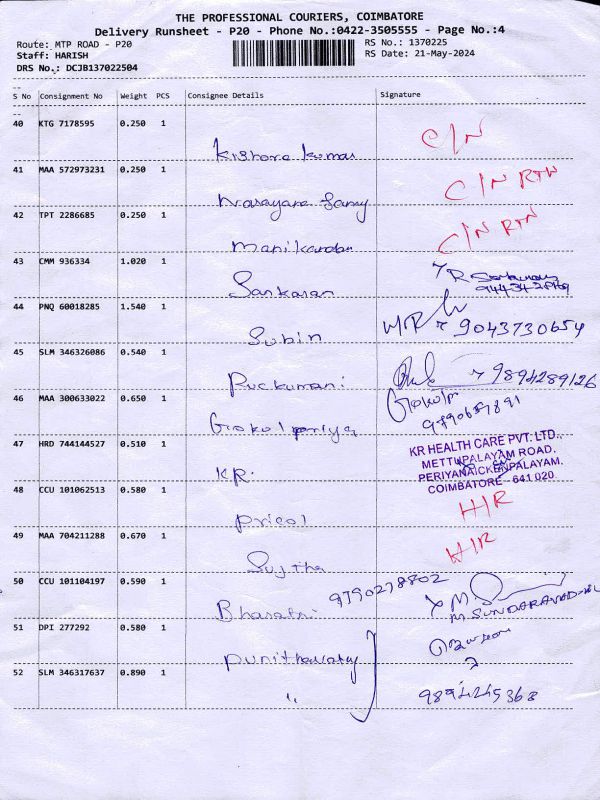 THE PROFESSIONAL COURIERS, COIMBATORE
Delivery Runsheet - P20 - Phone No.:0422-3505555 - Page No.:4
Route: MTP ROAD - P20 RS No.: 1370225
Staff: HARISH RS Date: 21-May-2024
DRS No.: DCJB137022504
S No Consignment No Weight PCS Consignee Details Signature
40 KTG 7178595 0.250 1
Kishore Kumar C/N
41 MAA 572973231 0.250 1
Narayana Samy C/N RTN
42 TPT 2286685 0.250 1
Manikandan C/N RTN
43 CMM 936334 1.020 1
Sankaran
44 PNQ 60018285 1.540 1
Subin 9043730654
45 SLM 346326086 0.540 1
Ruckumani 9894289126
46 MAA 300633022 0.650 1
Gokulpriya Gokulpr
9790657891
47 HRD 744144527 0.510 1
KR.
KR HEALTH CARE PVT. LTD.,
METTUPALAYAM ROAD,
PERIYANAICKENPALAYAM,
COIMBATORE - 641 020.
48 CCU 101062513 0.580 1
Pricol H/R
49 MAA 704211288 0.670 1
Sujtha H/R
50 CCU 101104197 0.590 1
Bharathi 9790278802
51 DPI 277292 0.580 1
Punithavathy
52 SLM 346317637 0.890 1
" 9894245368